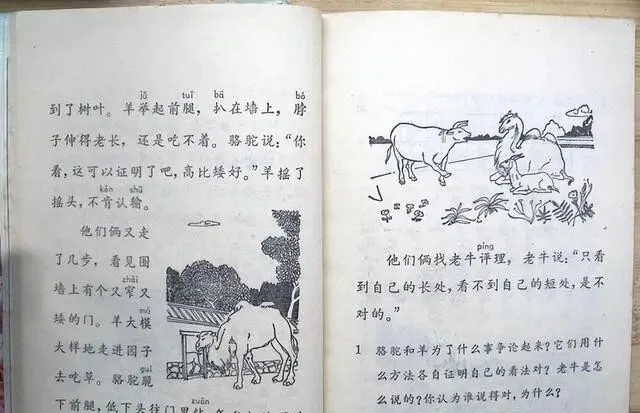 jǔ tuǐ bā bó
到了树叶。羊举起前腿，扒在墙上，脖
子伸得老长，还是吃不着。骆驼说：“你
看，这可以证明了吧，高比矮好。”羊摇了
kěn shū
摇头，不肯认输。
他们俩又走
了几步，看见围
zhǎi
墙上有个又窄又
mú
矮的门。羊大模
大样地走进园子
guì
去吃草。骆驼跪
zuān
下前腿，低下头往门里钻，
píng
他们俩找老牛评理，老牛说：“只看
到自己的长处，看不到自己的短处，是不
对的。”
1 骆驼和羊为了什么事争论起来？它们用什
么方法各自证明自己的看法对？老牛是怎
么说的？你认为谁说得对，为什么？